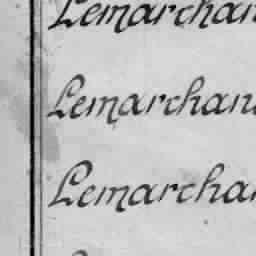 Lemarchan
Lemarchan
Lemarchan